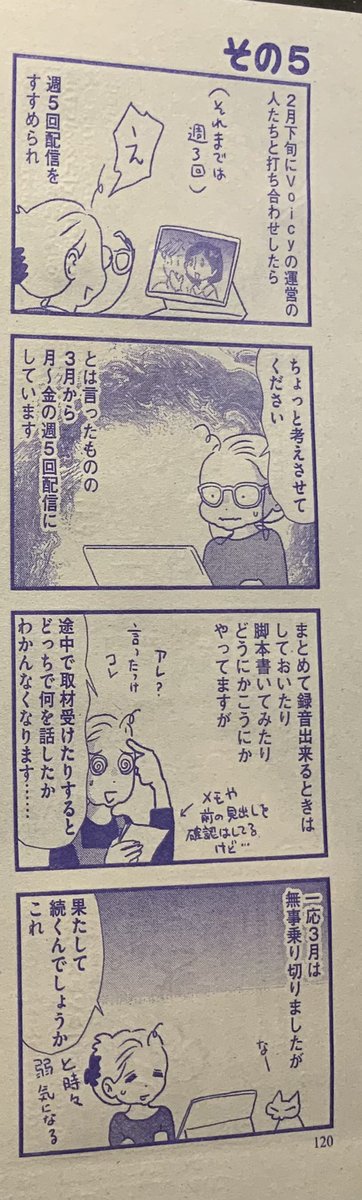 その5
2月下旬にVoicyの運営の
人たちと打ち合わせしたら
(それまでは
週3回)
えー
週5回配信を
すすめられ
ちょっと考えさせて
ください
とは言ったものの
3月から
月〜金の週5回配信に
しています
まとめて録音出来るときは
しておいたり
脚本書いてみたり
どうにかこうにか
やってますが
アレ?
コレ
言ったっけ
メモや
前の見出しを
確認はしてる
けど…
途中で取材受けたりすると
どっちで何を話したか
わかんなくなります……
一応3月は
無事乗り切りましたが
なー
果たして
続くんでしょうか
これ
と時々
弱気になる
120